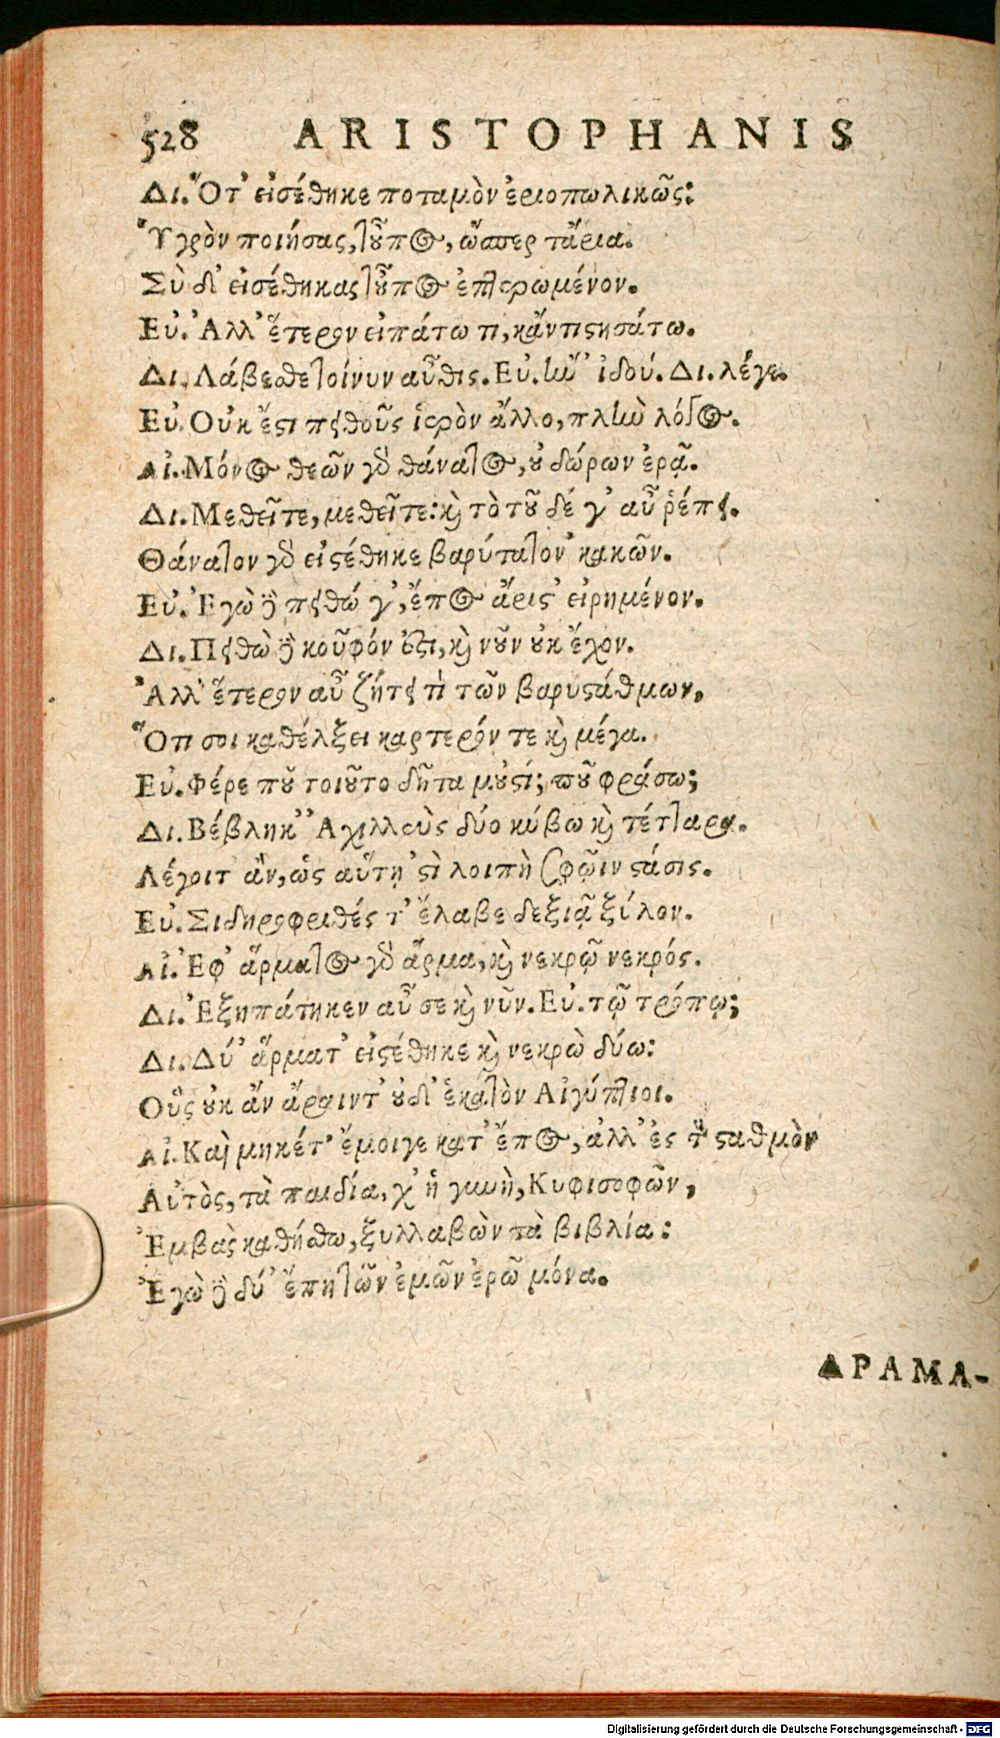 528 ARISTOPHANIS
Δι. Ὅτ' εἰσέθηκε ποταμὸν ἐριοπωλικῶς:
Ὑγρὸν ποιήσας τοὖπος, ὥσπερ τἄρια.
Σὺ δ' εἰσέθηκας τοὖπος ἐπτερωμένον.
Εὐ. Ἀλλ' ἕτερον εἰπάτω τι, κἀντιστησάτω.
Δι. Λάβεσθε τοίνυν αὖθις. Εὐ. ἢν ἰδού. Δι. λέγε.
Εὐ. Οὐκ ἔστι πειθοῦς ἱερὸν ἄλλο, πλὴν λόγος.
Αἰ. Μόνος θεῶν γὰρ θάνατος, οὐ δώρων ἐρᾷ.
Δι. Μεθεῖτε, μεθεῖτε: καὶ τὸ τοῦ δέ γ' αὖ ῥέπει.
Θάνατον γὰρ εἰσέθηκε βαρύτατον κακῶν.
Εὐ. Ἐγὼ δὲ πειθώ γ', ἔπος ἄριστ' εἰρημένον.
Δι. Πειθὼ δὲ κοῦφόν ἐστι, καὶ νοῦν οὐκ ἔχον.
Ἀλλ' ἕτερον αὖ ζήτει τὶ τῶν βαρυστάθμων,
Ὅτι σοι καθέλξει καρτερόν τε καὶ μέγα.
Εὐ. Φέρε ποῦ τοιοῦτο δῆτα μοὐστί; ποῦ φράσω;
Δι. Βέβληκ' Ἀχιλλεὺς δύο κύβω καὶ τέτταρα.
Λέγοιτ' ἂν, ὡς αὕτη 'στὶ λοιπὴ σφῷιν στάσις.
Εὐ. Σιδηροβριθές τ' ἔλαβε δεξιᾷ ξύλον.
Αἰ. Ἐφ' ἅρματος γὰρ ἅρμα, καὶ νεκρῷ νεκρός.
Δι. Ἐξηπάτηκεν αὖ σε καὶ νῦν. Εὐ. τῷ τρόπῳ;
Δι. Δύ' ἅρματ' εἰσέθηκε καὶ νεκρὼ δύω:
Οὓς οὐκ ἂν ἄραιντ' οὐδ' ἑκατὸν Αἰγύπτιοι.
Αἰ. Καὶ μηκέτ' ἔμοιγε κατ' ἔπος, ἀλλ' ἐς τὸν σταθμὸν
Αὐτὸς, τὰ παιδία, χ' ἡ γυνὴ, Κυφισοφῶν,
Ἐμβὰς καθήσθω, ξυλλαβὼν τὰ βιβλία:
Ἐγὼ δὲ δύ' ἔπη τῶν ἐμῶν ἐρῶ μόνα.
ΔΡΑΜΑ-
Digitalisierung gefördert durch die Deutsche Forschungsgemeinschaft - DFG